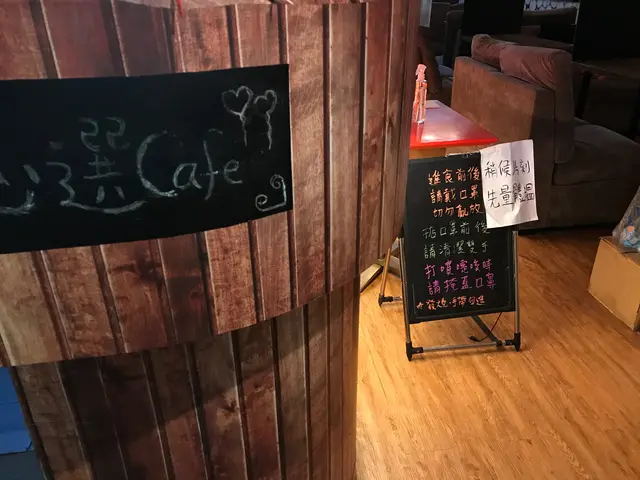 心選Cafe
進食前後
請戴口罩
切勿亂放
掂口罩前後
請清潔雙手
打噴嚏咳時
請掩蓋口罩
稍候片刻
先量體溫